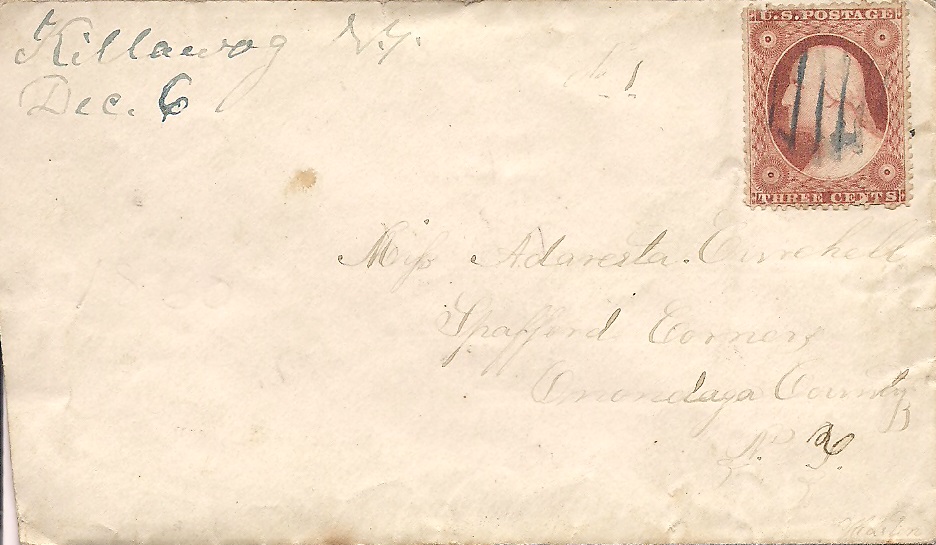 Killawog N.Y.
Dec. 6
U.S. POSTAGE
THREE CENTS
Miss Adaresta
Spafford Corners
Onondaga County
N. Y.